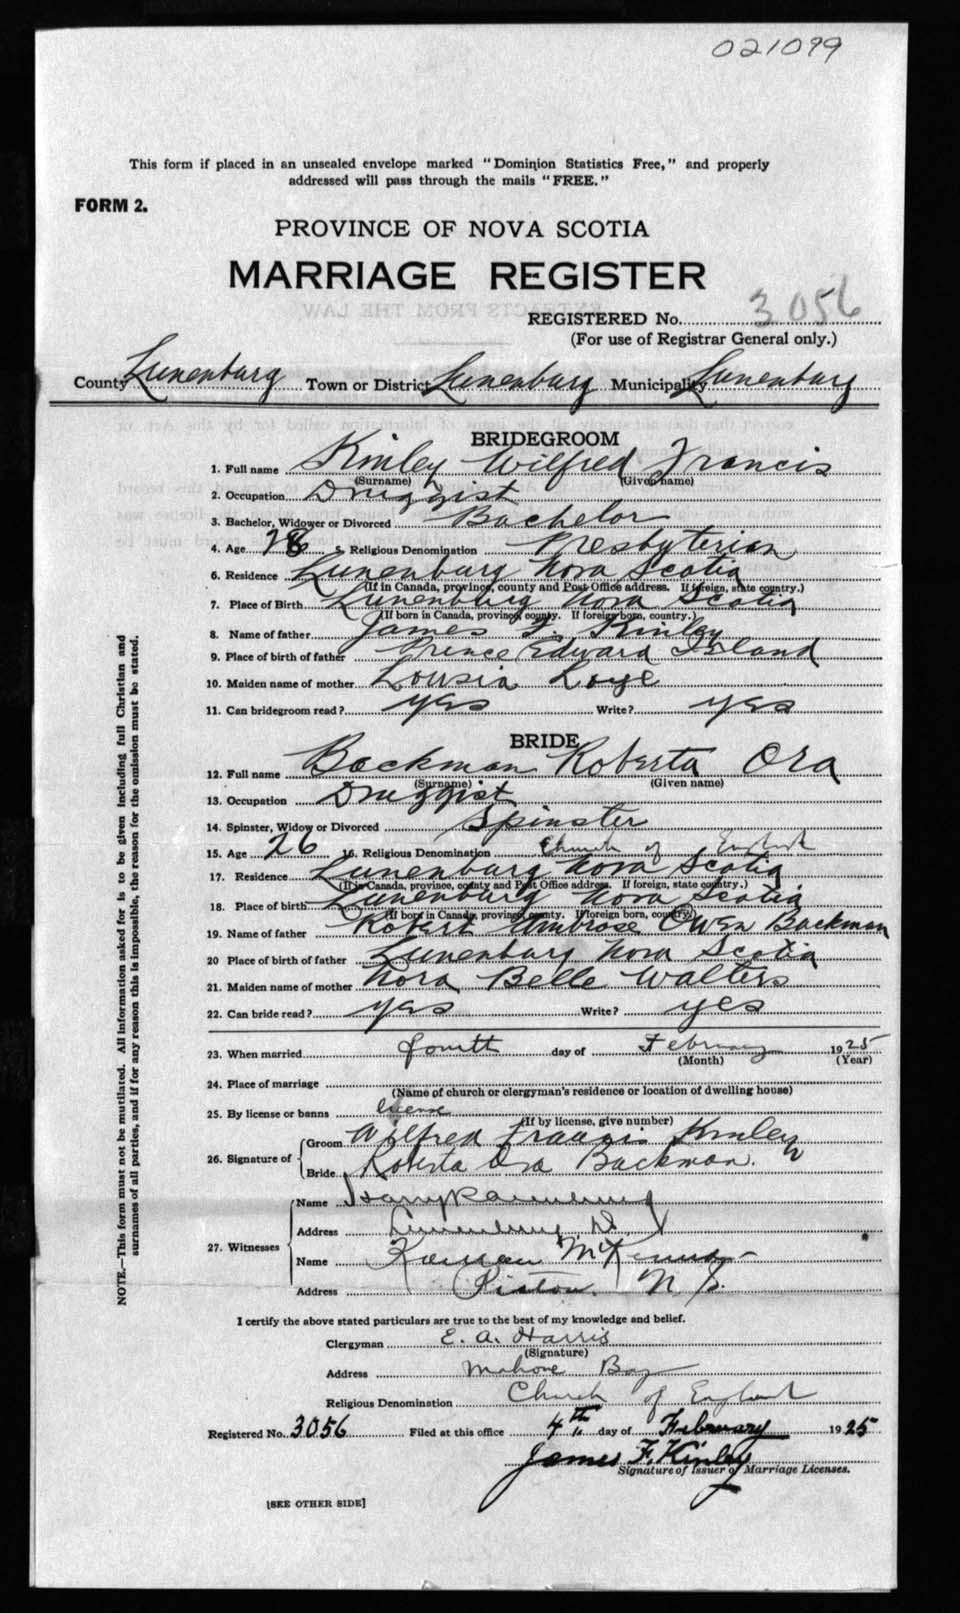 021099
This form if placed in an unsealed envelope marked "Dominion Statistics Free," and properly
addressed will pass through the mails "FREE."
FORM 2.
PROVINCE OF NOVA SCOTIA
MARRIAGE REGISTER
REGISTERED No. 3056
(For use of Registrar General only.)
County Lunenburg Town or District Lunenburg Municipality Lunenburg
BRIDEGROOM
1. Full name Kinley Wilfred Francis
(Surname) (Given name)
2. Occupation Druggist
3. Bachelor, Widower or Divorced Bachelor
4. Age 28 5. Religious Denomination Presbyterian
6. Residence Lunenburg Nova Scotia
(If in Canada, province, county and Post Office address. If foreign, state country.)
7. Place of Birth Lunenburg Nova Scotia
(If born in Canada, province, county. If foreign born, country.)
8. Name of father James F. Kinley
9. Place of birth of father Prince Edward Island
10. Maiden name of mother Lousia Loye
11. Can bridegroom read? yes Write? yes
BRIDE
12. Full name Backman Roberta Ora
(Surname) (Given name)
13. Occupation Druggist
14. Spinster, Widow or Divorced Spinster
15. Age 26 16. Religious Denomination Church of England
17. Residence Lunenburg Nova Scotia
(If in Canada, province, county and Post Office address. If foreign, state country.)
18. Place of birth Lunenburg Nova Scotia
(If born in Canada, province, county. If foreign born, country.)
19. Name of father Robert Ambrose Owen Backman
20 Place of birth of father Lunenburg Nova Scotia
21. Maiden name of mother Nora Belle Walters
22. Can bride read? yes Write? yes
23. When married fourth day of February 1925
(Month) (Year)
24. Place of marriage
(Name of church or clergyman's residence or location of dwelling house)
25. By license or banns license
(If by license, give number)
26. Signature of Groom Wilfred Francis Kinley
Bride Roberta Ora Backman.
27. Witnesses Name Harry
Address Lunenburg N.S.
Name McKenna
Address Pictou. N.S.
I certify the above stated particulars are true to the best of my knowledge and belief.
Clergyman E. A. Harris
(Signature)
Address Mahone Bay
Religious Denomination Church of England
Registered No. 3056 Filed at this office 4th day of February 1925
James F. Kinley
Signature of Issuer of Marriage Licenses.
[SEE OTHER SIDE]
NOTE.—This form must not be mutilated. All information asked for is to be given including full Christian and
surnames of all parties, and if for any reason this is impossible, the reason for the omission must be stated.